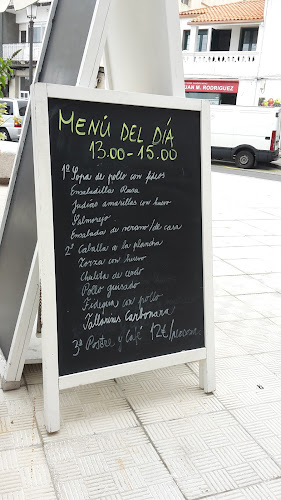 JUAN M. RODRIGUEZ
MENÚ DEL DÍA
13.00-15.00
1º Sopa de pollo con fideos
Ensaladilla Rusa
Judías amarillas con huevo
Salmorejo
Ensalada de verano/de casa
2º Caballa a la plancha
Zorza con huevo
Chuleta de cerdo
Pollo guisado
Fideua con pollo
Tallarines Carbonara
3º Postre y Café 12€/persona